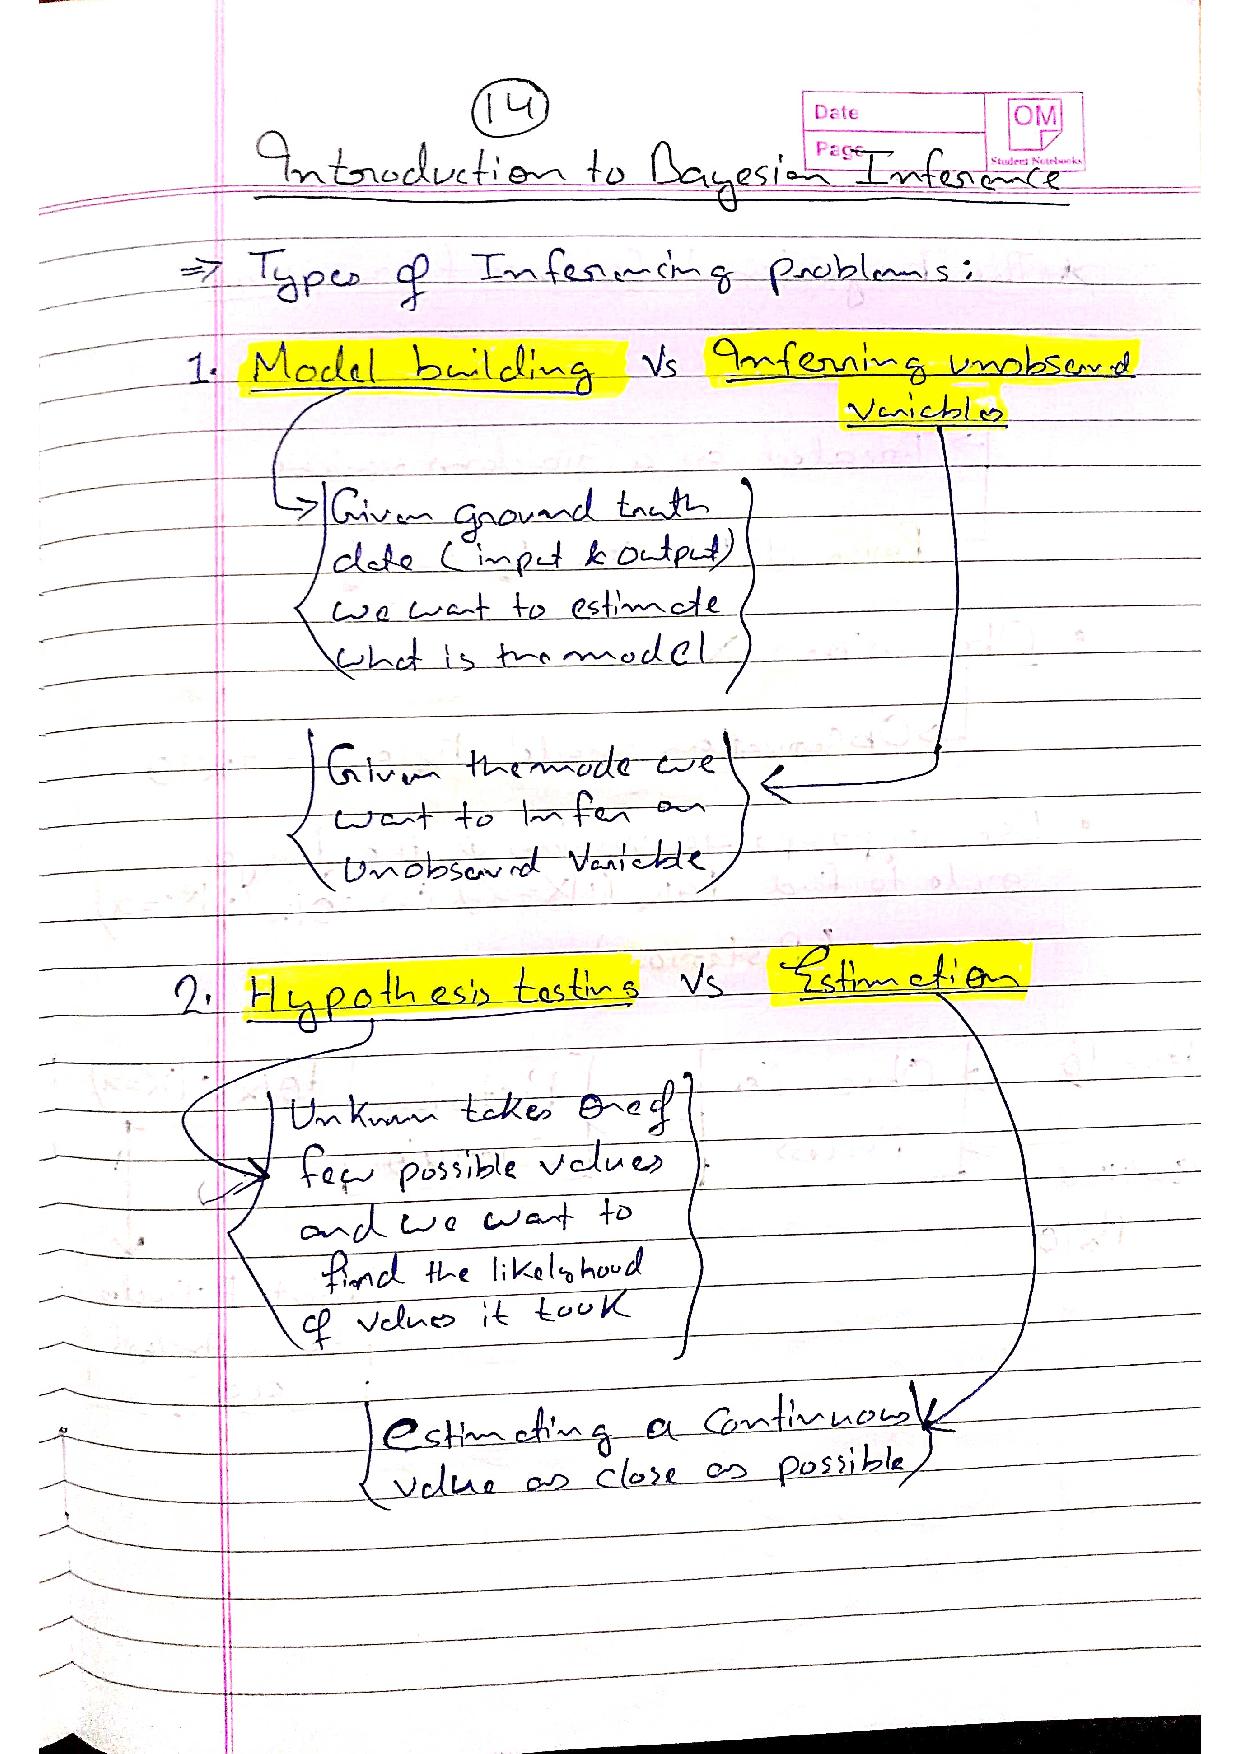 14
Date
OM
Page
Student Notebooks
Introduction to Bayesian Inference
⇒ Types of Inferencing problems:
1. Model building Vs Inferring unobserved
variables
Given ground truth
data (input & output)
we want to estimate
what is the model
Given the mode we
want to Infer an
Unobserved Variable
2. Hypothesis testing Vs Estimation
Unknown takes One of
few possible values
and we want to
find the likelyhood
of values it took
estimating a Continuous
value as close as possible